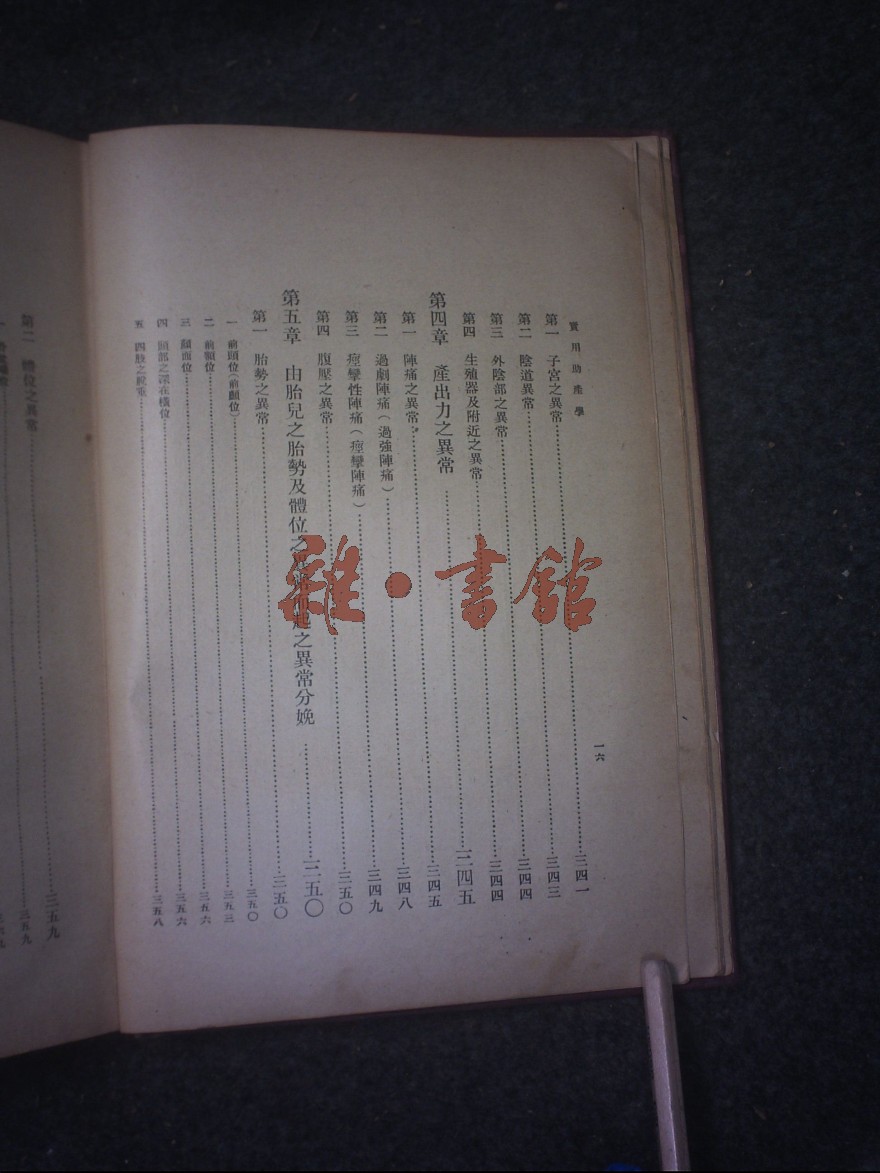 實用助產學
一六
第一 子宮之異常……三四一
第二 陰道異常……三四三
第三 外陰部之異常……三四四
第四 生殖器及附近之異常……三四四
第四章 產出力之異常……三四五
第一 陣痛之異常……三四五
第二 過劇陣痛(過強陣痛)……三四八
第三 痙攣性陣痛(痙攣陣痛)……三四九
第四 腹壓之異常……三五〇
第五章 由胎兒之胎勢及體位之異常而起之異常分娩……三五〇
第一 胎勢之異常……三五〇
一 前頭位(前顱位)……三五〇
二 前額位……三五三
三 顏面位……三五六
四 頭部之深在橫位……三五六
五 四肢之脫垂……三五八
第二 體位之異常……三五九
三五九
雜·書館